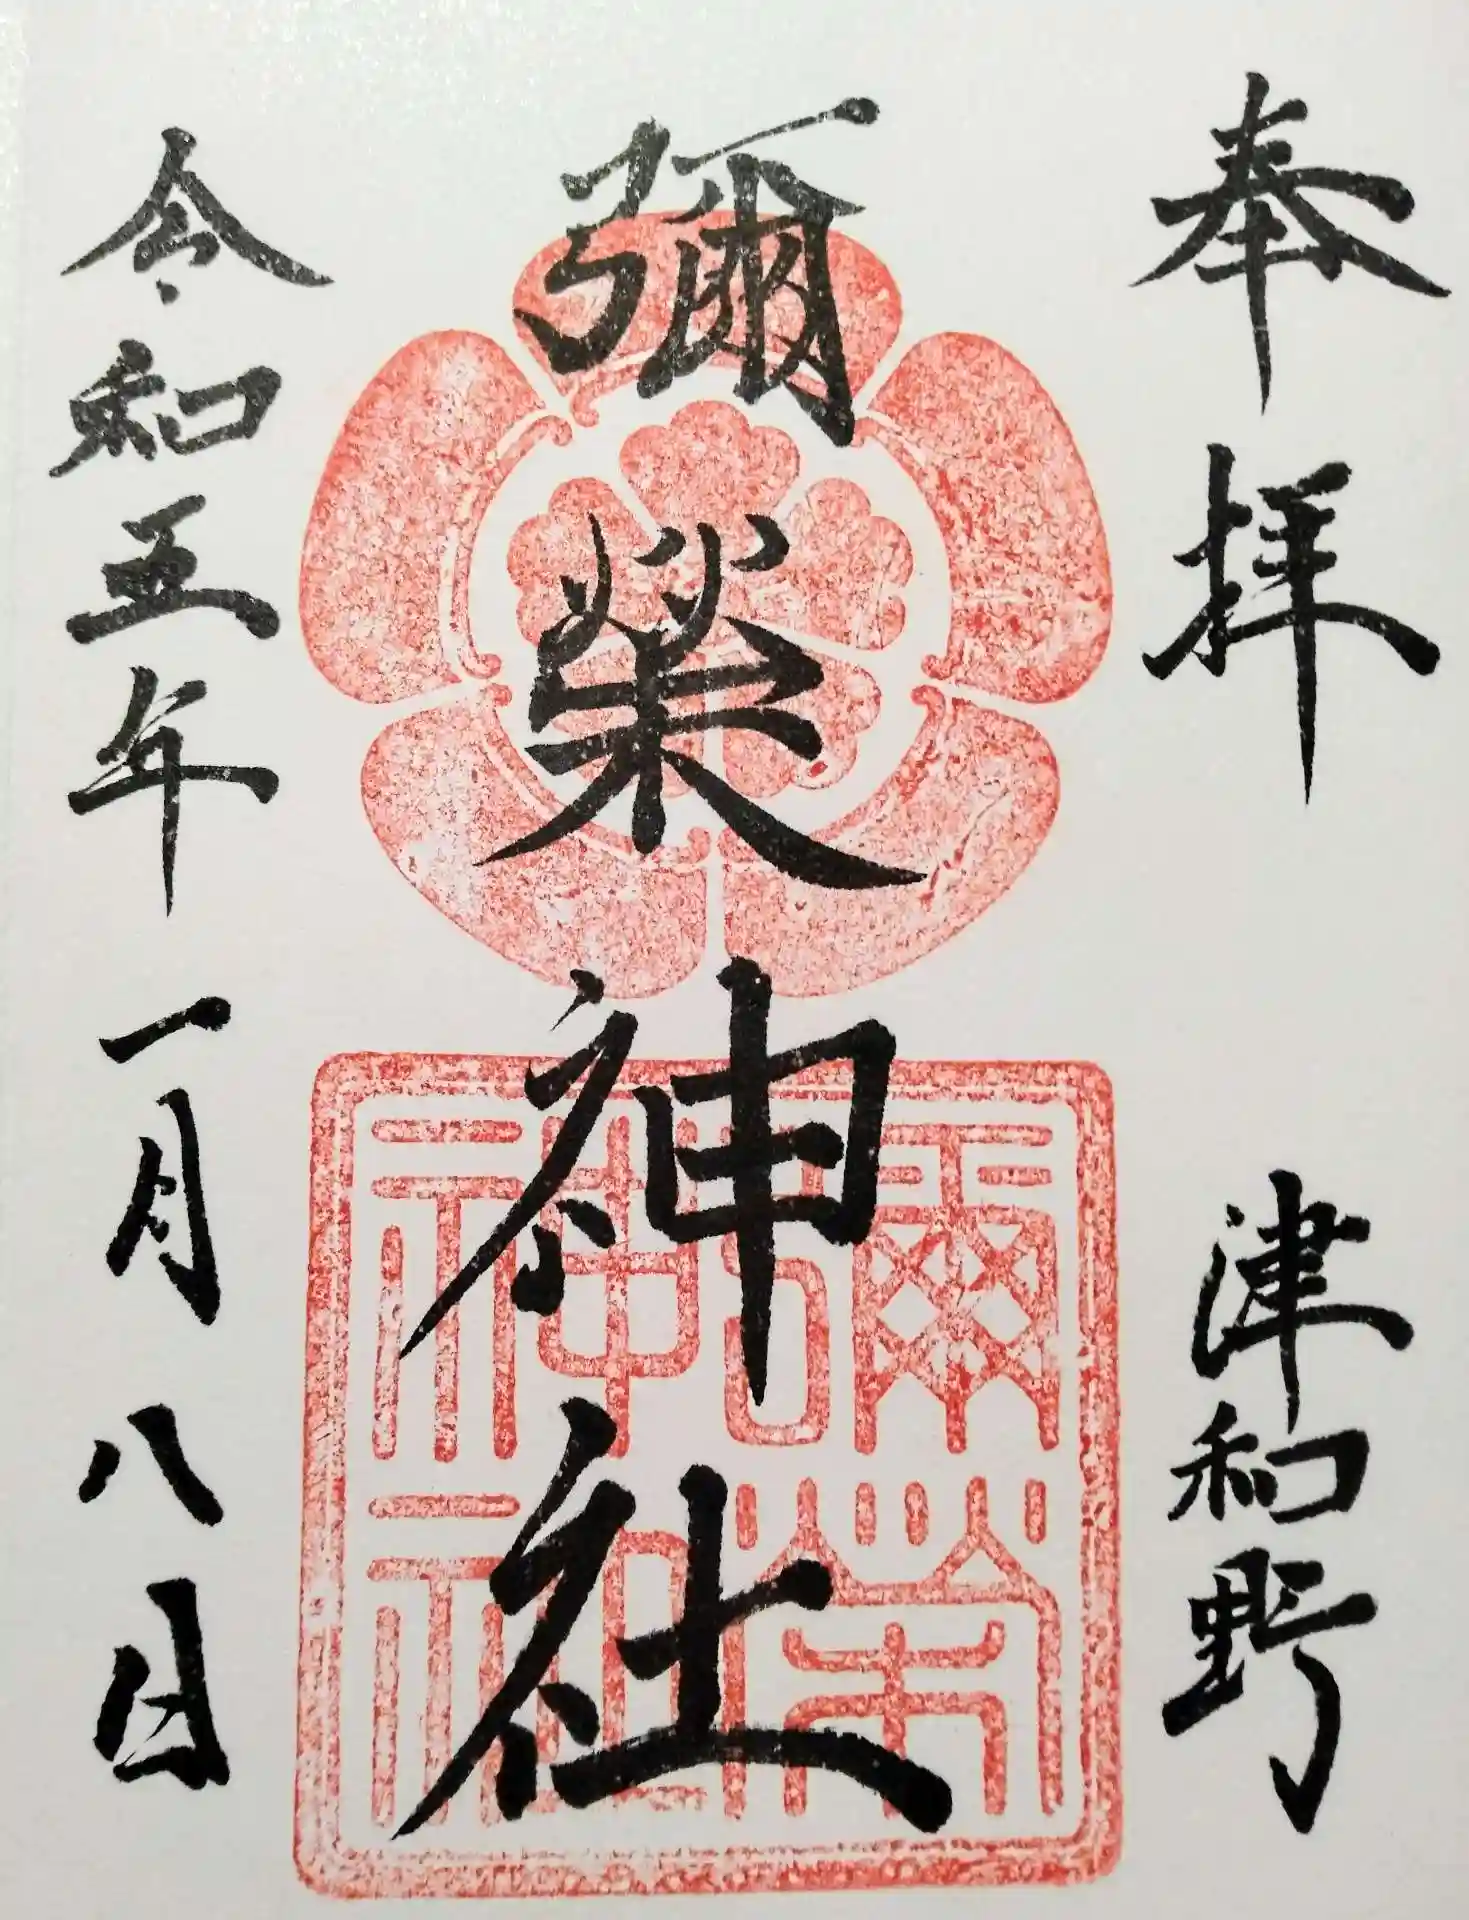 奉拝 津和野
彌榮神社
彌榮神社
令和五年一月八日